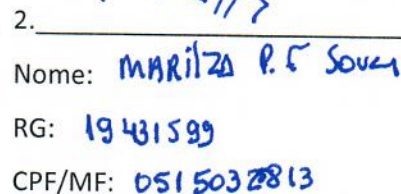 2.
Nome: MARilZA P. F Souza
RG: 19431599
CPF/MF: 05150328813